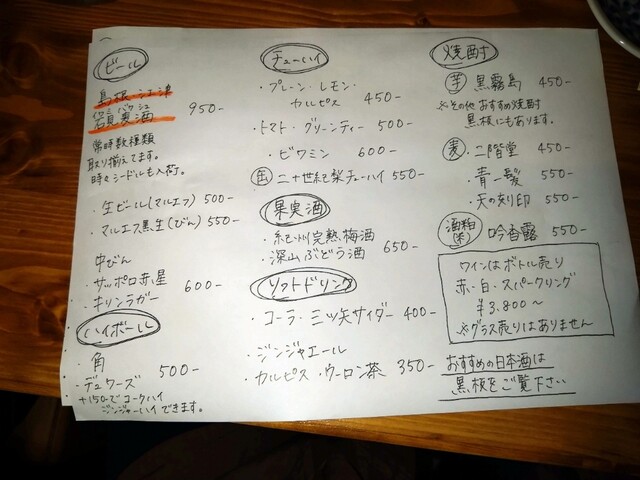 ビール
島根 江津
イワミ バクシュ
石見麦酒 950-
常時数種類
取り揃えてます。
時々シードルも入荷。
・生ビール(マルエフ) 500-
・マルエフ黒生(びん) 550-
中びん
・サッポロ赤星
・キリンラガー 600-
ハイボール
・角
・デュワーズ 500-
+150-でコークハイ
ジンジャーハイできます。
チューハイ
・プレーン・レモン・
カルピス 450-
・トマト・グリーンティー 500-
・ビワミン 600-
缶 二十世紀梨チューハイ 550-
果実酒
・紀州完熟梅酒
・深山ぶどう酒 650-
ソフトドリンク
・コーラ・三ツ矢サイダー 400-
・ジンジャエール
・カルピス・ウーロン茶 350-
焼酎
芋 黒霧島 450-
※その他おすすめ焼酎
黒板にもあります。
麦 ・二階堂 450-
・青一髪 550-
・天の刻印 550-
酒粕(米) 吟香露 550-
ワインはボトル売り
赤・白・スパークリング
¥3.800〜
※グラス売りはありません
おすすめの日本酒は
黒板をご覧下さい